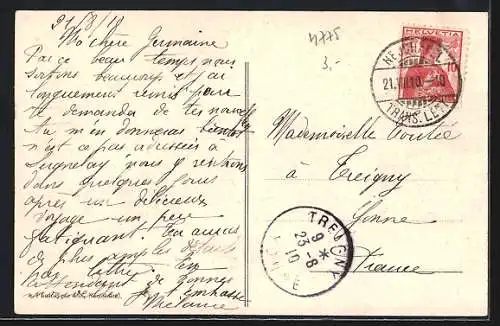 21/8/10
Ma chère Germaine
Par ce beau temps nous
sortons beaucoup et j'ai
longuement remis pour
te demander de tes nouvelles
tu m'en donneras bientôt
n'est ce pas adressées à
Seignelay nous y rentrons
dans quelques jours
après un délicieux
voyage un peu
fatiguant. Tu auras
de plus amples détails
par lettre. En
attendant de bonnes
je t'embrasse
Mélanie
4775
3.-
HELVETIA
10
NEUCHATEL
21.VIII.10.-10
TRANS. LETT.
Mademoiselle
à Treigny
Yonne
France
TREIGNY
9 *
23-8
10
YONNE